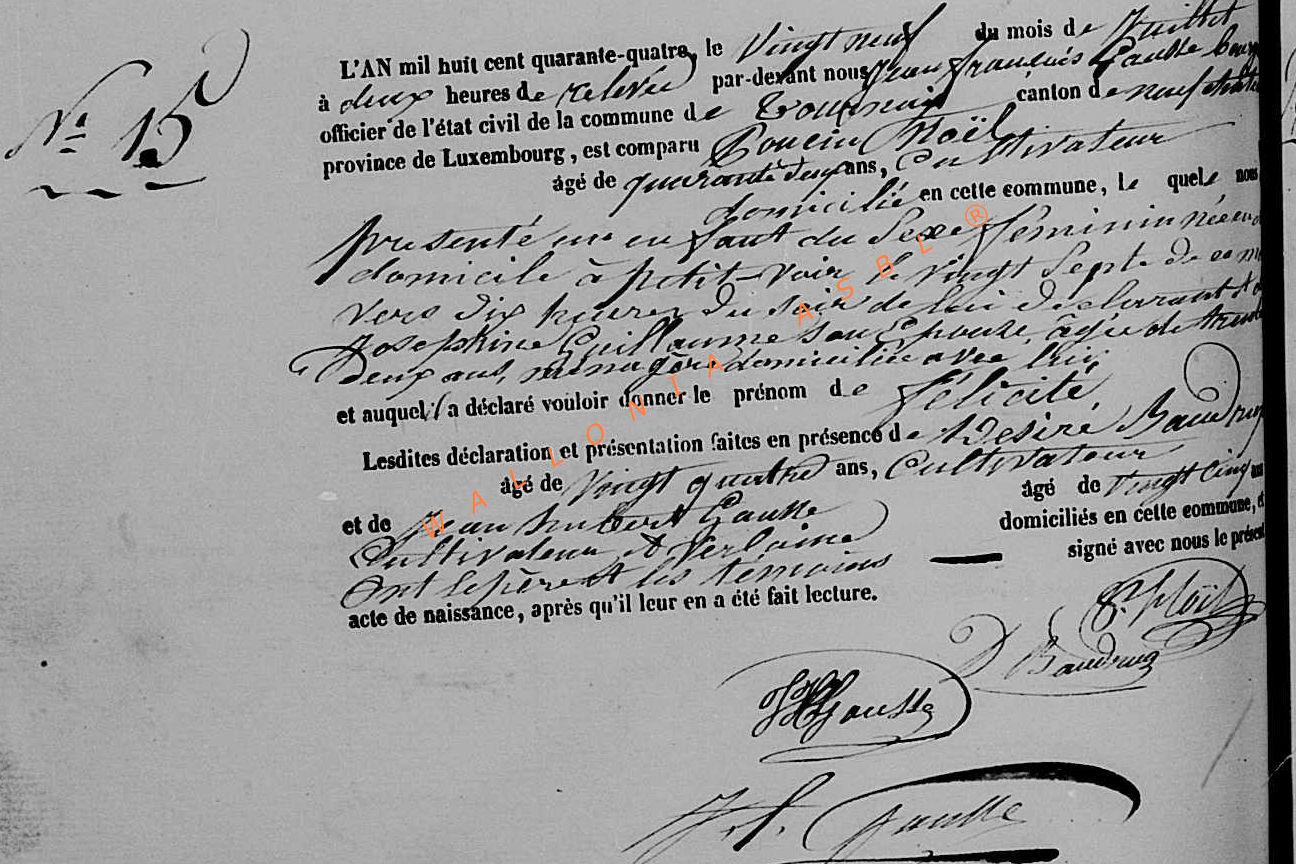 N° 15
L'AN mil huit cent quarante-quatre, le vingt neuf du mois de Juillet
à deux heures de relevée par-devant nous Jean François Gausse
officier de l'état civil de la commune de Tournay canton de neufchateau
province de Luxembourg, est comparu Poncin Noël
âgé de quarante deux ans, Cultivateur
domicilié en cette commune, le quel nous
presenté un enfant du Sexe féminin née en
domicile à petit-voir le vingt Sept de ce
vers dix heures du soir de lui déclarant et
Josephine Guillaume son Epouze, agée de trente
deux ans, menagère domiciliée avec lui,
et auquel il a déclaré vouloir donner le prénom de félicité
Lesdites déclaration et présentation faites en présence de Desiré Baudrux
âgé de vingt quatre ans, Cultivateur
et de Jean hubert Gausse âgé de vingt cinq ans
Cultivateur à Verlaine domiciliés en cette commune, et
ont le père et les témoins signé avec nous le présent
acte de naissance, après qu'il leur en a été fait lecture.
P. Noël
D Baudrux
JH Gausse
J.f. Gausse
WALLONIA ASBL ®